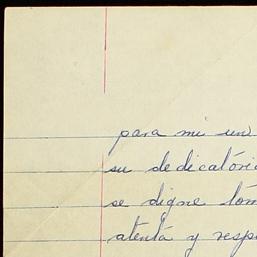 para mi un
su dedicatóri
se digne tóm
atentá y resp